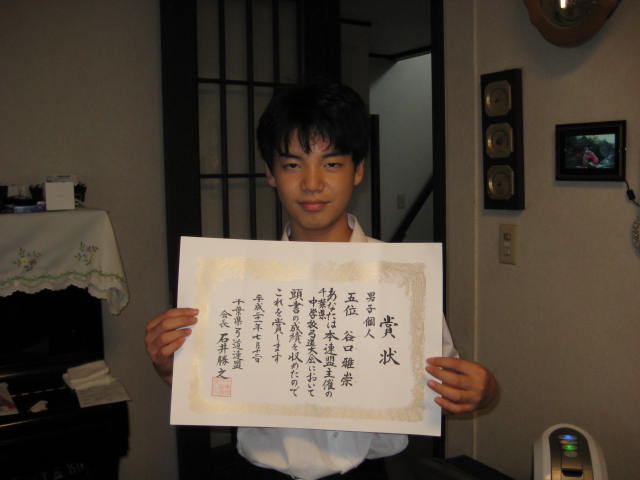 賞状
男子個人
五位 谷口雅崇
あなたは本連盟主催の
千葉県中学校弓道大会において
頭書の成績を収めたので
これを賞します
平成二十一年七月十二日
千葉県弓道連盟
会長 石井勝之